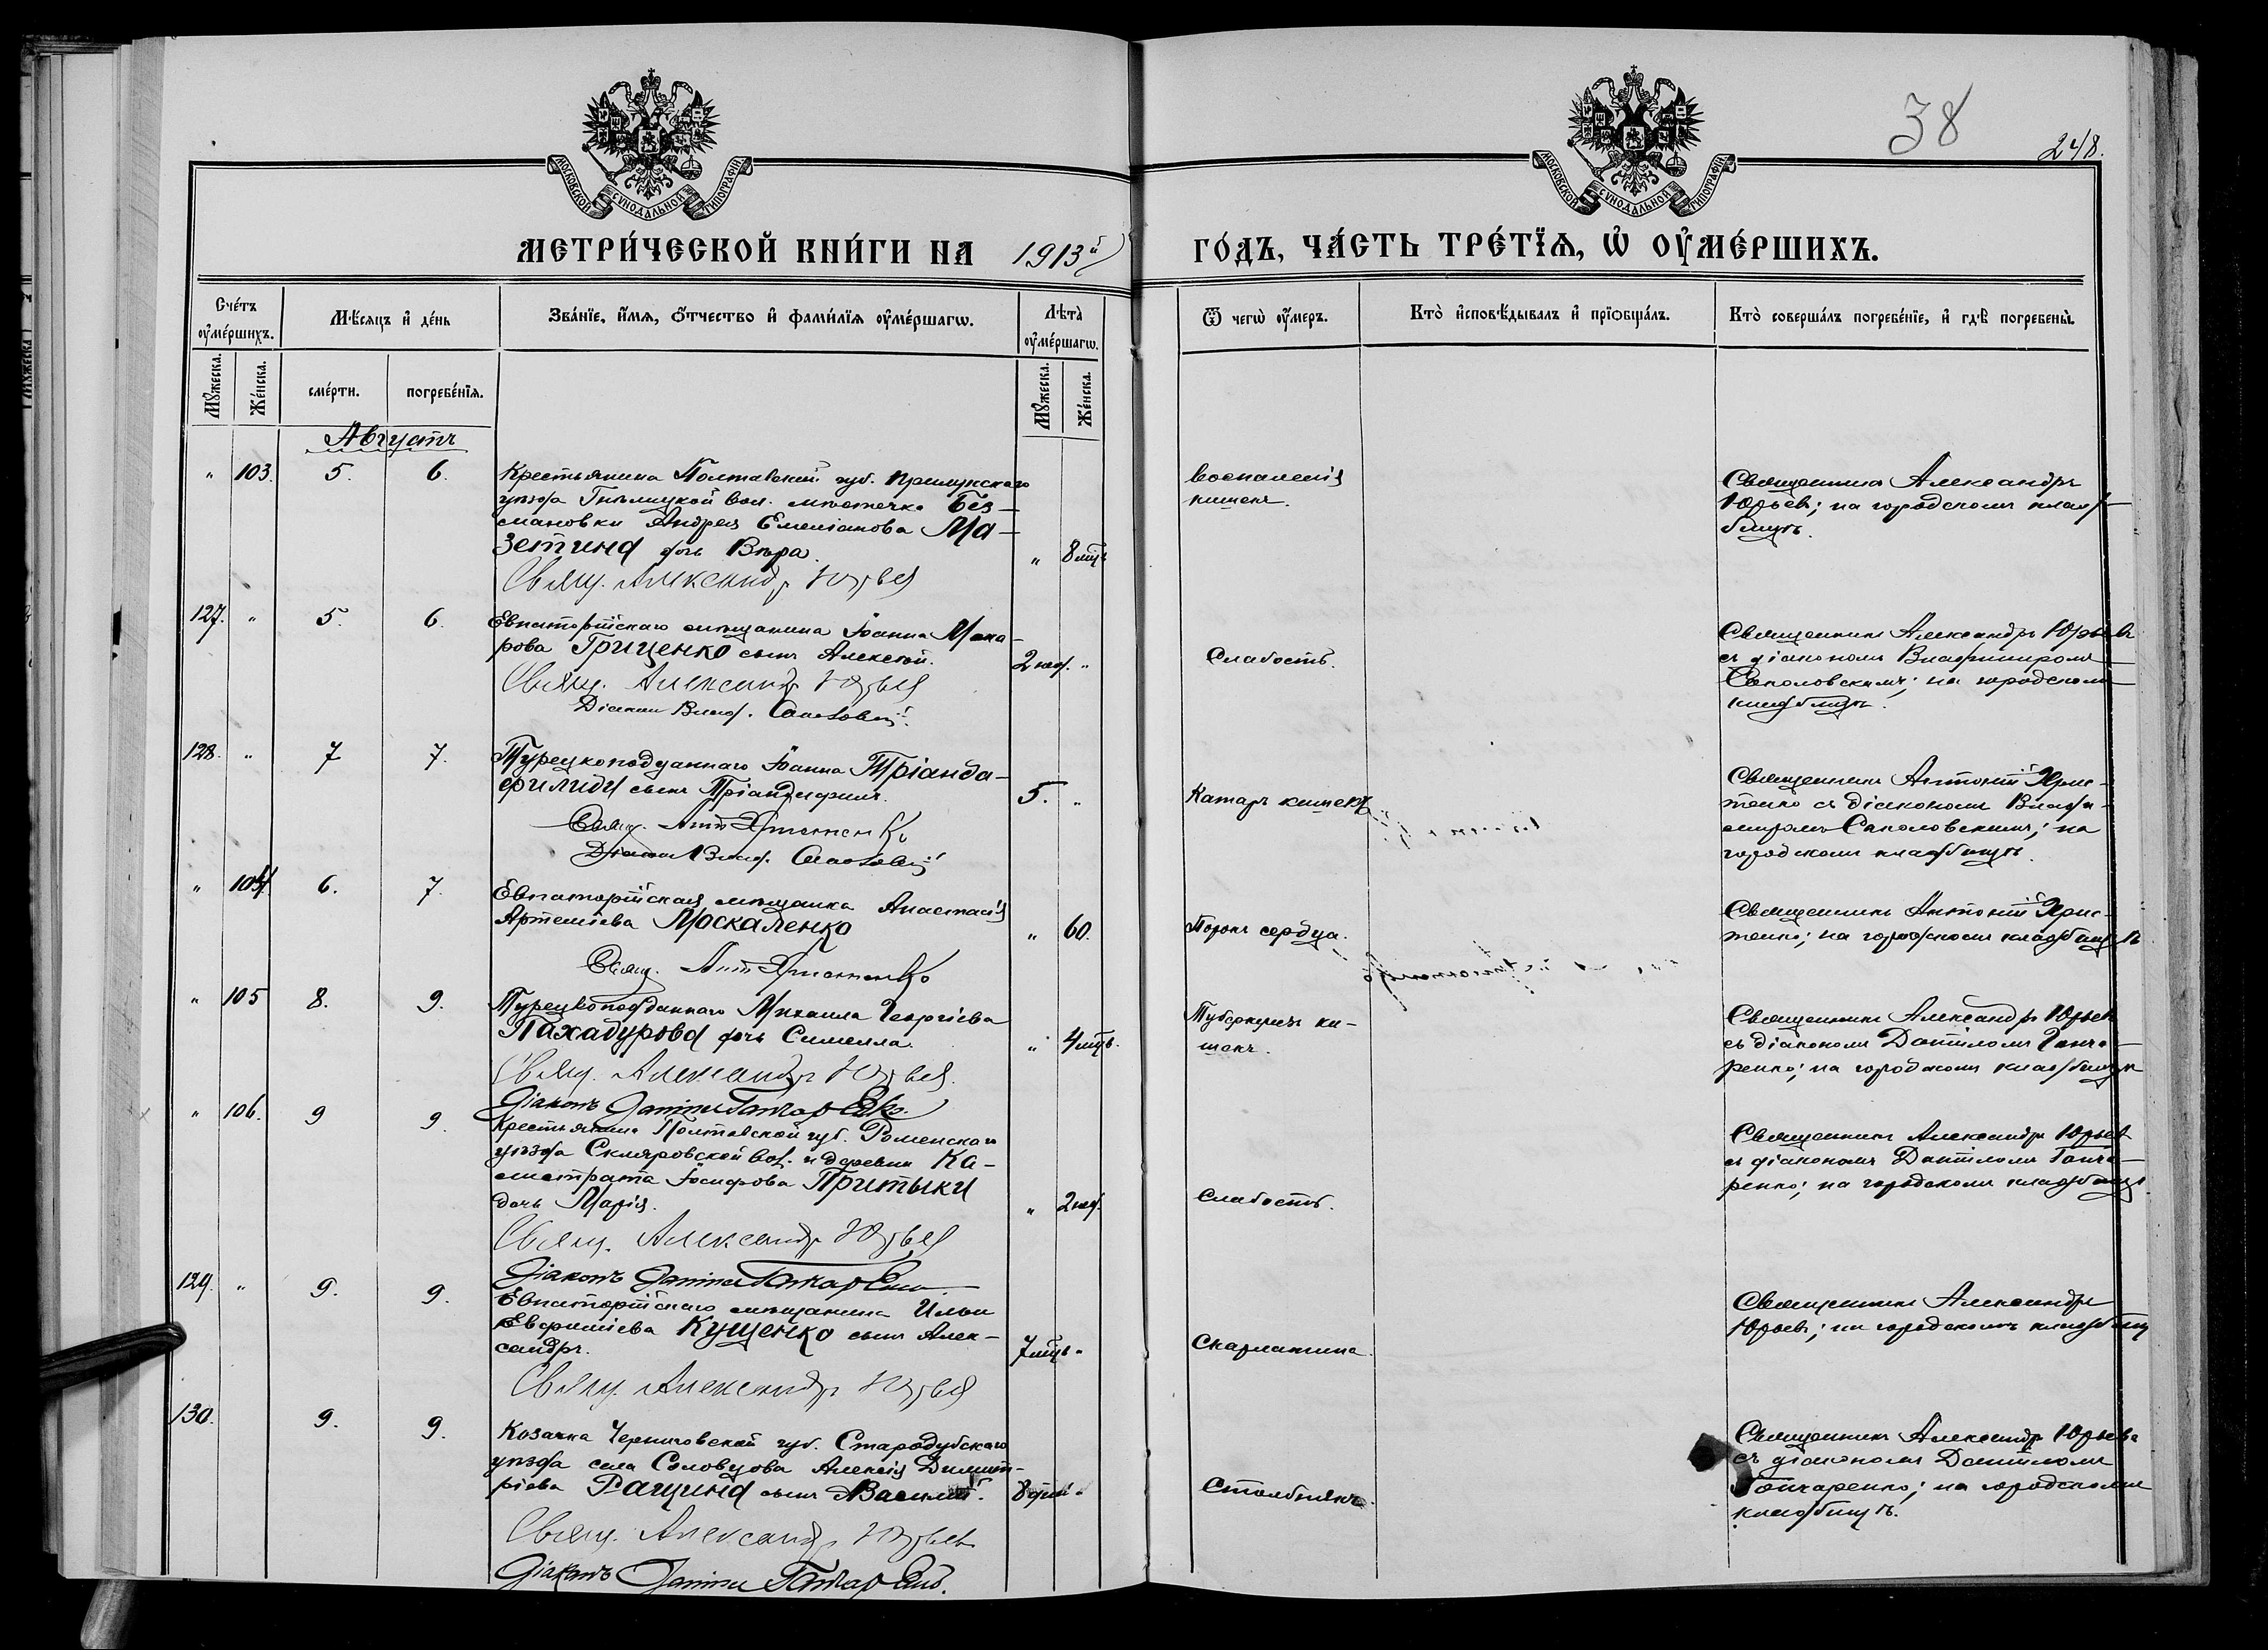 38
248.
МОСКОВСКОЙ СѴНОДАЛЬНОЙ ТИПОГРАФІИ
МОСКОВСКОЙ СѴНОДАЛЬНОЙ ТИПОГРАФІИ
МЕТРИ́ЧЕСКОЙ КНИ́ГИ НА 1913й
ГО́ДЪ, ЧА́СТЬ ТРЕ́ТЇѦ, Ѡ҆ ОУ҆МЕ́РШИХЪ.
Сче́тъ оу҆ме́ршихъ.
Мѣ́сяцъ и҆ де́нь
Зва́нїе, и҆́мѧ, ѻ҆́тчество и҆ фами́лїѧ оу҆ме́ршагѡ.
Лѣ̀та оу҆ме́ршагѡ.
Ѿ чегѡ̀ оу҆́меръ.
Кто̀ и҆сповѣ́дывалъ и҆ прїѻбща́лъ.
Кто̀ соверша́лъ погребе́нїе, и҆ гдѣ̀ погребены̀.
Мꙋ́жеска.
Же́нска.
сме́рти.
погребе́нїѧ.
Мꙋ́жеска.
Же́нска.
Августъ
" 103. 5. 6.
Крестьянина Полтавской губ. Прилукскаго
уѣзда Гнѣлицкой вол. мѣстечка Без-
мановки Андрея Емеліанова Ма-
зетина дочь Вѣра.
" 8 мцъ
Свящ. Александръ Юрьев
воспаленія
кишекъ.
Священникъ Александръ
Юрьевъ; на городскомъ клад-
бищѣ.
127. " 5. 6.
Евпаторійскаго мѣщанина Іоанна Мака-
рова Гриценко сынъ Алексѣй.
2 нед. "
Свящ. Александръ Юрьев
Діаконъ Влад. Соколовскій
Слабость.
Священникъ Александръ Юрьевъ
съ діакономъ Владиміромъ
Соколовскимъ; на городскомъ
кладбищѣ.
128. " 7 7.
Турецкоподданнаго Іоанна Тріанда-
филиди сынъ Тріандафилъ.
5. "
Свящ. Ант. Христенко
Діаконъ Влад. Соколовскій
Катаръ кишекъ.
Священникъ Антоній Хрис-
тенко съ діакономъ Влади-
міромъ Соколовскимъ; на
городскомъ кладбищѣ.
" 104. 6. 7.
Евпаторійская мѣщанка Анастасія
Артеміева Москаленко
" 60.
Свящ. Ант. Христенко
Порокъ сердца.
Священникъ Антоній Хрис-
тенко; на городскомъ кладбищѣ
" 105 8. 9.
Турецкоподданнаго Михаила Георгіева
Пахадурова дочь Симелла.
" 4 мцъ.
Свящ. Александръ Юрьев.
Діаконъ Даніилъ Гончаренко.
Туберкулезъ ки-
шекъ.
Священникъ Александръ Юрьевъ
съ діакономъ Даніиломъ Гонча-
ренко; на городскомъ кладбищѣ
" 106. 9 9.
Крестьянина Полтавской губ. Роменскаго
уѣзда Скляровской вол. и деревни Ка-
листрата Іосифова Притыки
дочь Марія.
" 2 нед.
Свящ. Александръ Юрьев
Діаконъ Даніилъ Гончаренко
Слабость.
Священникъ Александръ Юрьевъ
съ діакономъ Даніиломъ Гонча-
ренко; на городскомъ кладбищѣ.
129. " 9. 9.
Евпаторійскаго мѣщанина Ильи
Евфиміева Кущенко сынъ Алек-
сандръ.
7 мцъ "
Свящ. Александръ Юрьев
Скарлатина.
Священникъ Александръ
Юрьевъ; на городскомъ кладбищ
130. 9. 9.
Козачка Черниговской губ. Стародубскаго
уѣзда села Соловцова Алексія Димит-
ріева Ращина сынъ Василій.
8 дней "
Свящ. Александръ Юрьевъ
Діаконъ Даніилъ Гончаренко.
Столбнякъ.
Священникъ Александръ Юрьевъ
съ діакономъ Даніиломъ
Гончаренко; на городскомъ
кладбищѣ.